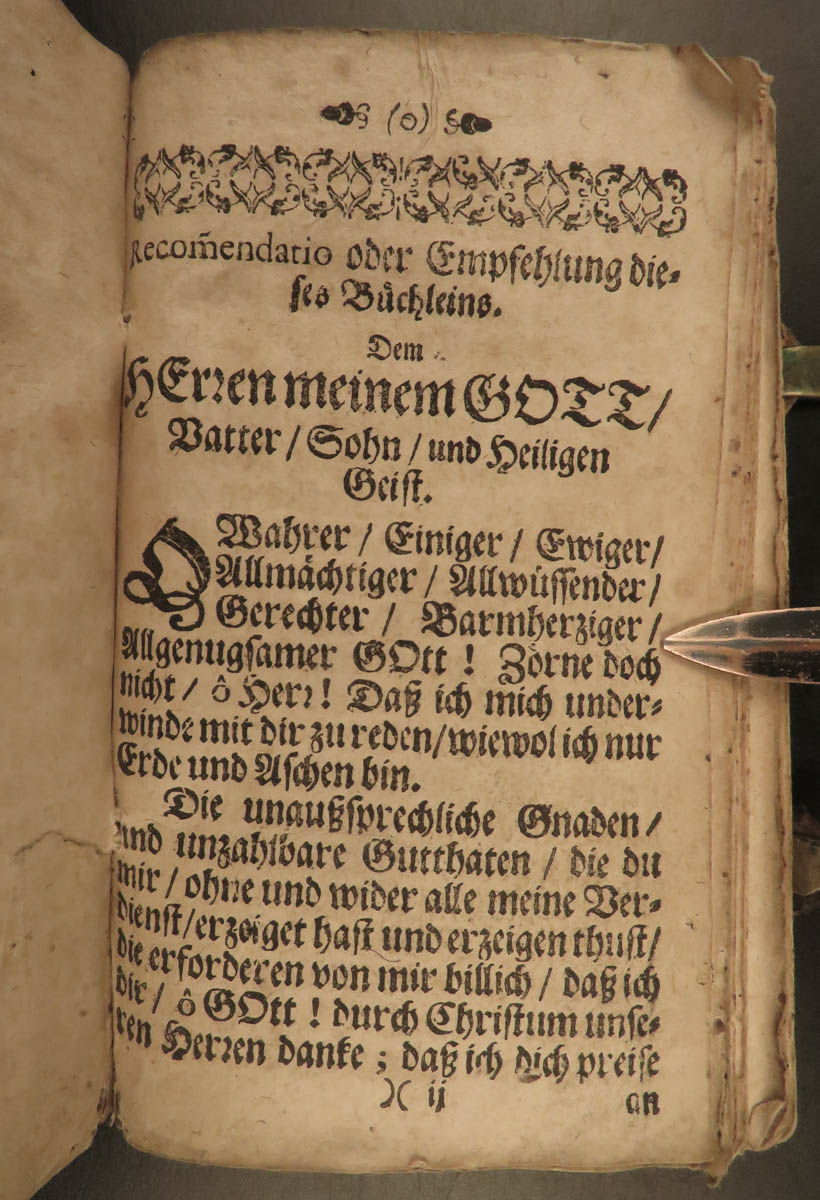 (o)
Recom̃endatio oder Empfehlung die-
ses Büchleins.
Dem
HErren meinem GOTT/
Vatter / Sohn / und Heiligen
Geist.
O Wahrer / Einiger / Ewiger/
Allmächtiger / Allwüssender/
Gerechter / Barmherziger/
Allgenugsamer GOtt ! Zörne doch
nicht / ô Herr! Daß ich mich under-
winde mit dir zu reden/wiewol ich nur
Erde und Aschen bin.
Die unaußsprechliche Gnaden/
und unzahlbare Gutthaten / die du
mir / ohne und wider alle meine Ver-
dienst/erzeiget hast und erzeigen thust/
die erforderen von mir billich / daß ich
dir / ô GOtt ! durch Christum unse-
ren Herren danke ; daß ich dich preise
)( ij an